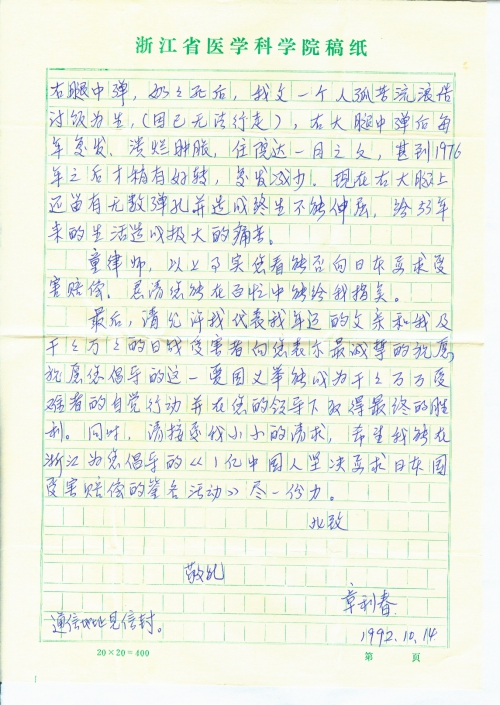 浙江省医学科学院稿纸
右腿中弹，奶奶死后，我父一个人孤苦流浪借
讨饭为生，（因已无法行走），右大腿中弹后每
年复发、溃烂肿脓，住院达一月之久，甚到1976
年之后才稍有好转，复发减少。现在右大腿上
还留有无数弹孔并造成终生不能伸屈，给55年
来的生活造成极大的痛苦。
童律师，以上事实您看能否向日本要求受
害赔偿、恳请您能在百忙中能给我指点。
最后，请允许我代表我年迈的父亲和我及
千千万万的日战受害者向您表示最诚挚的祝愿
祝愿您倡导的这一爱国义举能成为千千万万受
难者的自觉行动并在您的领导下取得最终的胜
利。同时，请接受我小小的请求，希望我能在
浙江为您倡导的《1亿中国人坚决要求日本国
受害赔偿的签名活动》尽一份力。
此致
敬礼
章利春
通信地址见信封。
1992.10.14
20×20=400
第 页